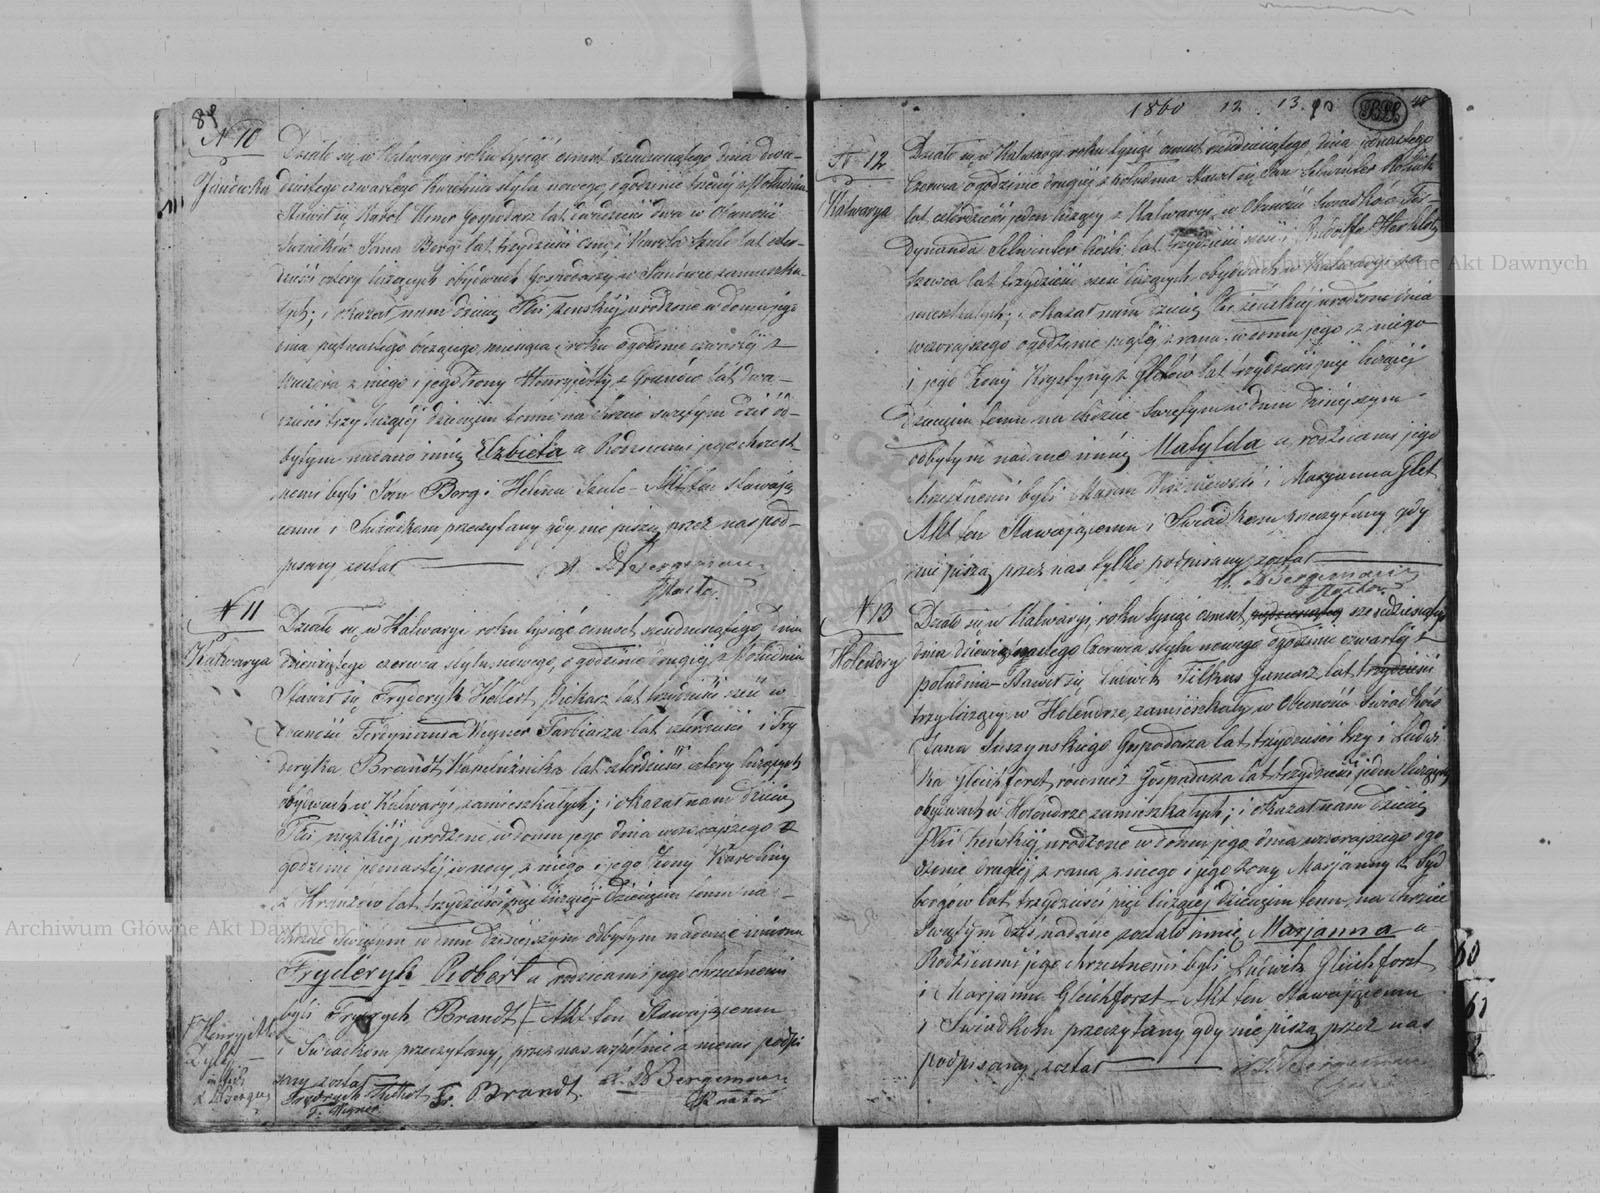 89
N 10
Janówka
Działo się w Kalwaryi roku tysiąc ośmset sześćdziesiątego dnia dwu-
dziestego czwartego Kwietnia stylu nowego, o godzinie trzeciej z Południa
Stawił się Karol Gospodarz lat dwadzieścia dwa w Obecności
Świadków Jana Berg lat trzydzieści ośm, i Karola Szulc lat czter-
dzieści cztery liczących obydwuch Gospodarzy w Janówce zamieszka-
łych; i okazał nam dziecię Płci żeńskiej urodzone w domu jego
dnia piętnastego bieżącego miesiąca i roku o godzinie czwartej z
wieczora z niego i jego Żony Henryjetty z lat dwa-
dzieścia trzy liczącej dziecięciu temu na Chrzcie świętym dziś od-
bytym nadano imię Elżbieta a Rodzicami jego chrzest-
nemi byli Jan Berg i Helena Szulc – Akt ten stawają-
cemu i Świadkom przeczytany, gdy nie piszą, przez nas pod-
pisany został
Bergemann
Pastor.
N 11
Kalwarya
Działo się w Kalwaryi roku tysiąc ośmset sześćdziesiątego, dnia
dziewiątego czerwca stylu nowego, o godzinie drugiej z Południa
Stawił się Fryderyk lat trzydzieści sześć w
Obecności Ferdynanda Wegner Farbiarza lat czterdzieści i Fry-
deryka Brandt Kapelusznika lat czterdzieści cztery liczących
obydwuch w Kalwaryi zamieszkałych; i okazał nam dziecię
Płci męzkiej urodzone w domu jego dnia wczorajszego o
godzinie jedenastej w nocy z niego i jego Żony Karoliny
z Krauzów lat trzydzieści pięć liczącej Dziecięciu temu na
chrzcie świętym w dniu dzisiejszym odbytym nadane imiona
Fryderyk Robert a rodzicami jego chrzestnemi
byli Frydrych Brandt Akt ten Stawającemu
i Świadkom przeczytany, przez nas wspólnie z niemi podpi-
sany został
Fr. Brandt. Bergemann
F. Wegner Pastor
i Henryjetta
1860 12. 13. 90
N 12
Kalwarya
Działo się w Kalwaryi roku tysiąc ośmset sześćdziesiątego, dnia
Czerwca o godzinie drugiej z Południa Stawił się Jan
lat czterdzieści jeden liczący z Kalwaryi, w Obecności Świadków Fer-
dynanda Cieśli lat trzydzieści sześć i Rudolfa
Szewca lat trzydzieści sześć liczących obydwuch w Kalwaryi za-
mieszkałych; i okazał nam dziecię Płci żeńskiej urodzone dnia
wczorajszego o godzinie piątej z rana w domu jego z niego
i jego Żony Krystyny z lat trzydzieści pięć liczącej
Dziecięciu temu na chrzcie Świętym w dniu dzisiejszym
odbytym nadano imię Matylda a rodzicami jego
chrzestnemi byli i Maryanna Glet
Akt ten Stawającemu i Świadkom przeczytany gdy
nie piszą przez nas tylko podpisany został
Bergemann
Pastor.
N 13
Holendry
Działo się w Kalwaryi, roku tysiąc ośmset sześćdziesiątego
dnia dziewiętnastego Czerwca stylu nowego o godzinie czwartej z
południa Stawił się Ludwik lat trzydzieści
trzy liczący w Holendrze zamieszkały w Obecności Świadków
Jana Suszynskiego Gospodarza lat trzydzieści trzy i Ludwi-
ka Gleichforst, również Gospodarza lat trzydzieści jeden liczących
obydwuch w Holendrze zamieszkałych; i okazał nam dziecię
Płci żeńskiej, urodzone w domu jego, dnia wczorajszego o go-
dzinie drugiej z rana z niego i jego Żony Marjanny z
lat trzydzieści pięć liczącej dziecięciu temu, na chrzcie
Świętym dziś nadane zostało imię Marjanna a
Rodzicami jego chrzestnemi byli Ludwik Gleichforst
i Marjanna Gleichforst – Akt ten Stawającemu
i Świadkom przeczytany gdy nie piszą, przez nas
podpisany został
Bergemann
Archiwum Główne Akt Dawnych
Archiwum Główne Akt Dawnych